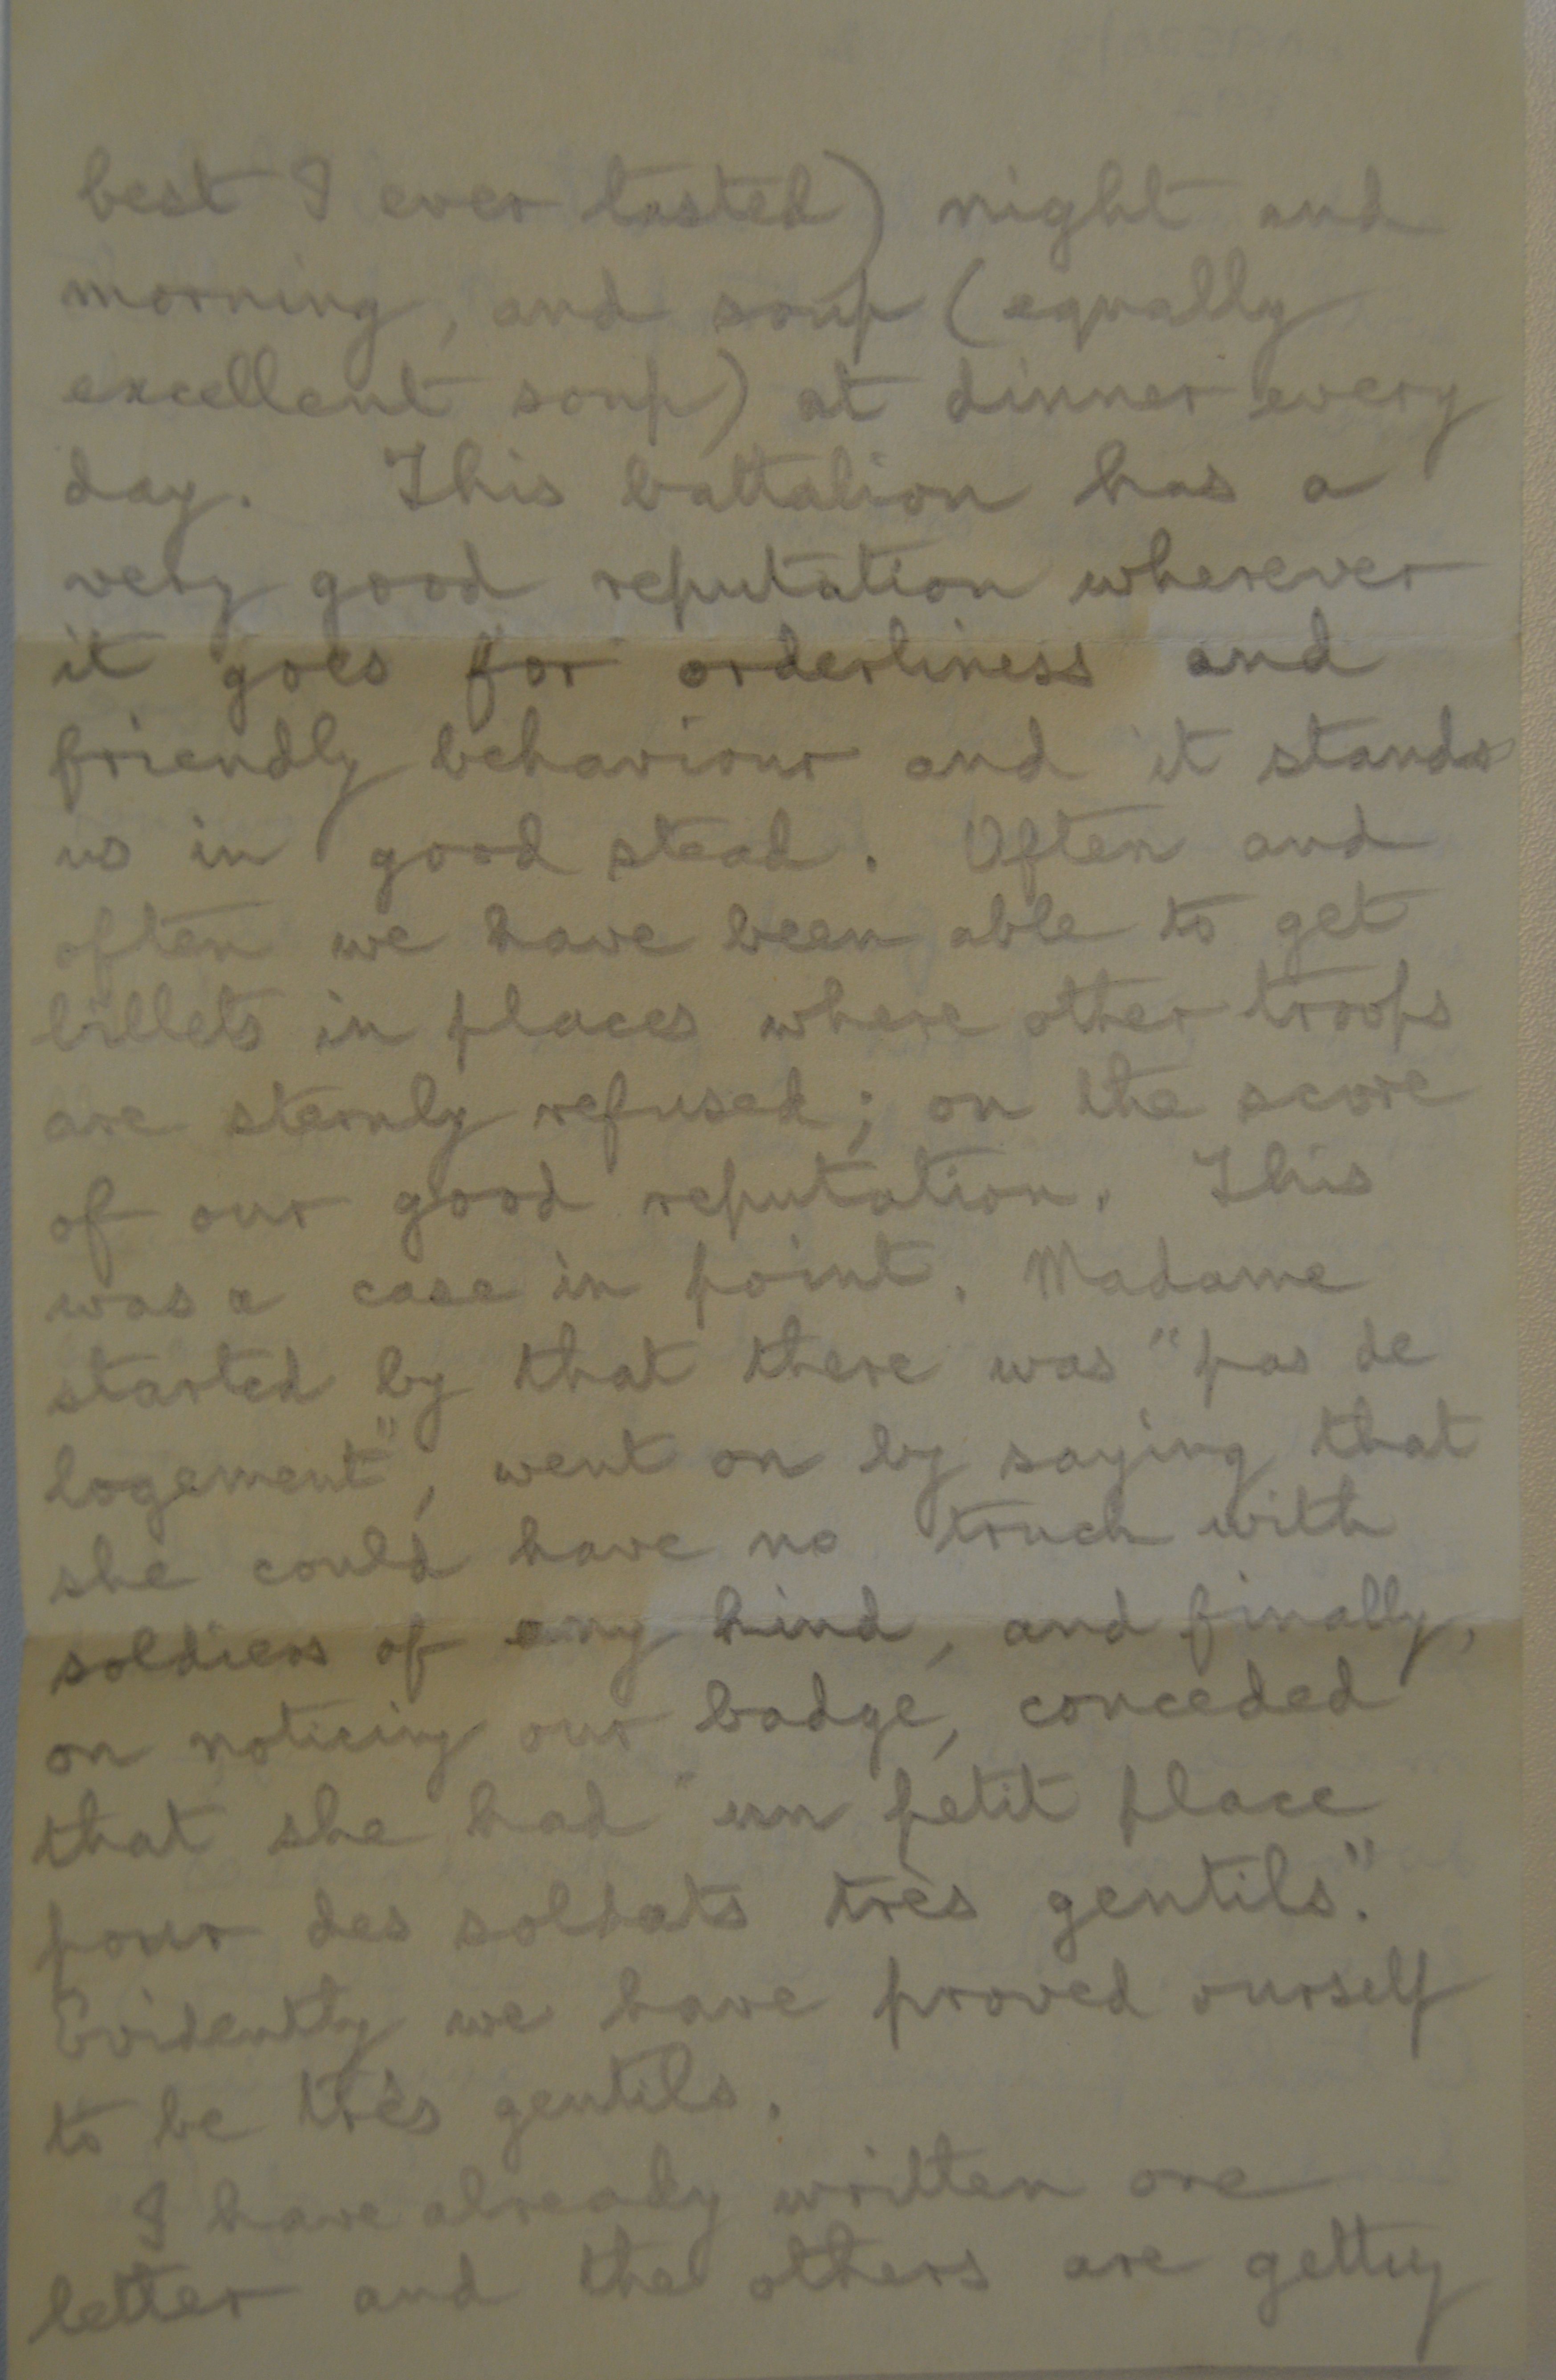 best I ever tasted) night and
morning, and soup (equally
excellent soup) at dinner every
day. This battalion has a
very good reputation wherever
it goes for orderliness and
friendly behaviour and it stands
us in good stead. Often and
often we have been able to get
billets in places where other troops
are sternly refused; on the score
of our good reputation. This
was a case in point. Madame
started by that there was "pas de
logement", went on by saying that
she could have no truck with
soldiers of any kind, and finally,
on noticing our badge, conceded
that she had "un petit place
pour des soldats très gentils."
Evidently we have proved ourself
to be très gentils.
I have already written one
letter and the others are getting